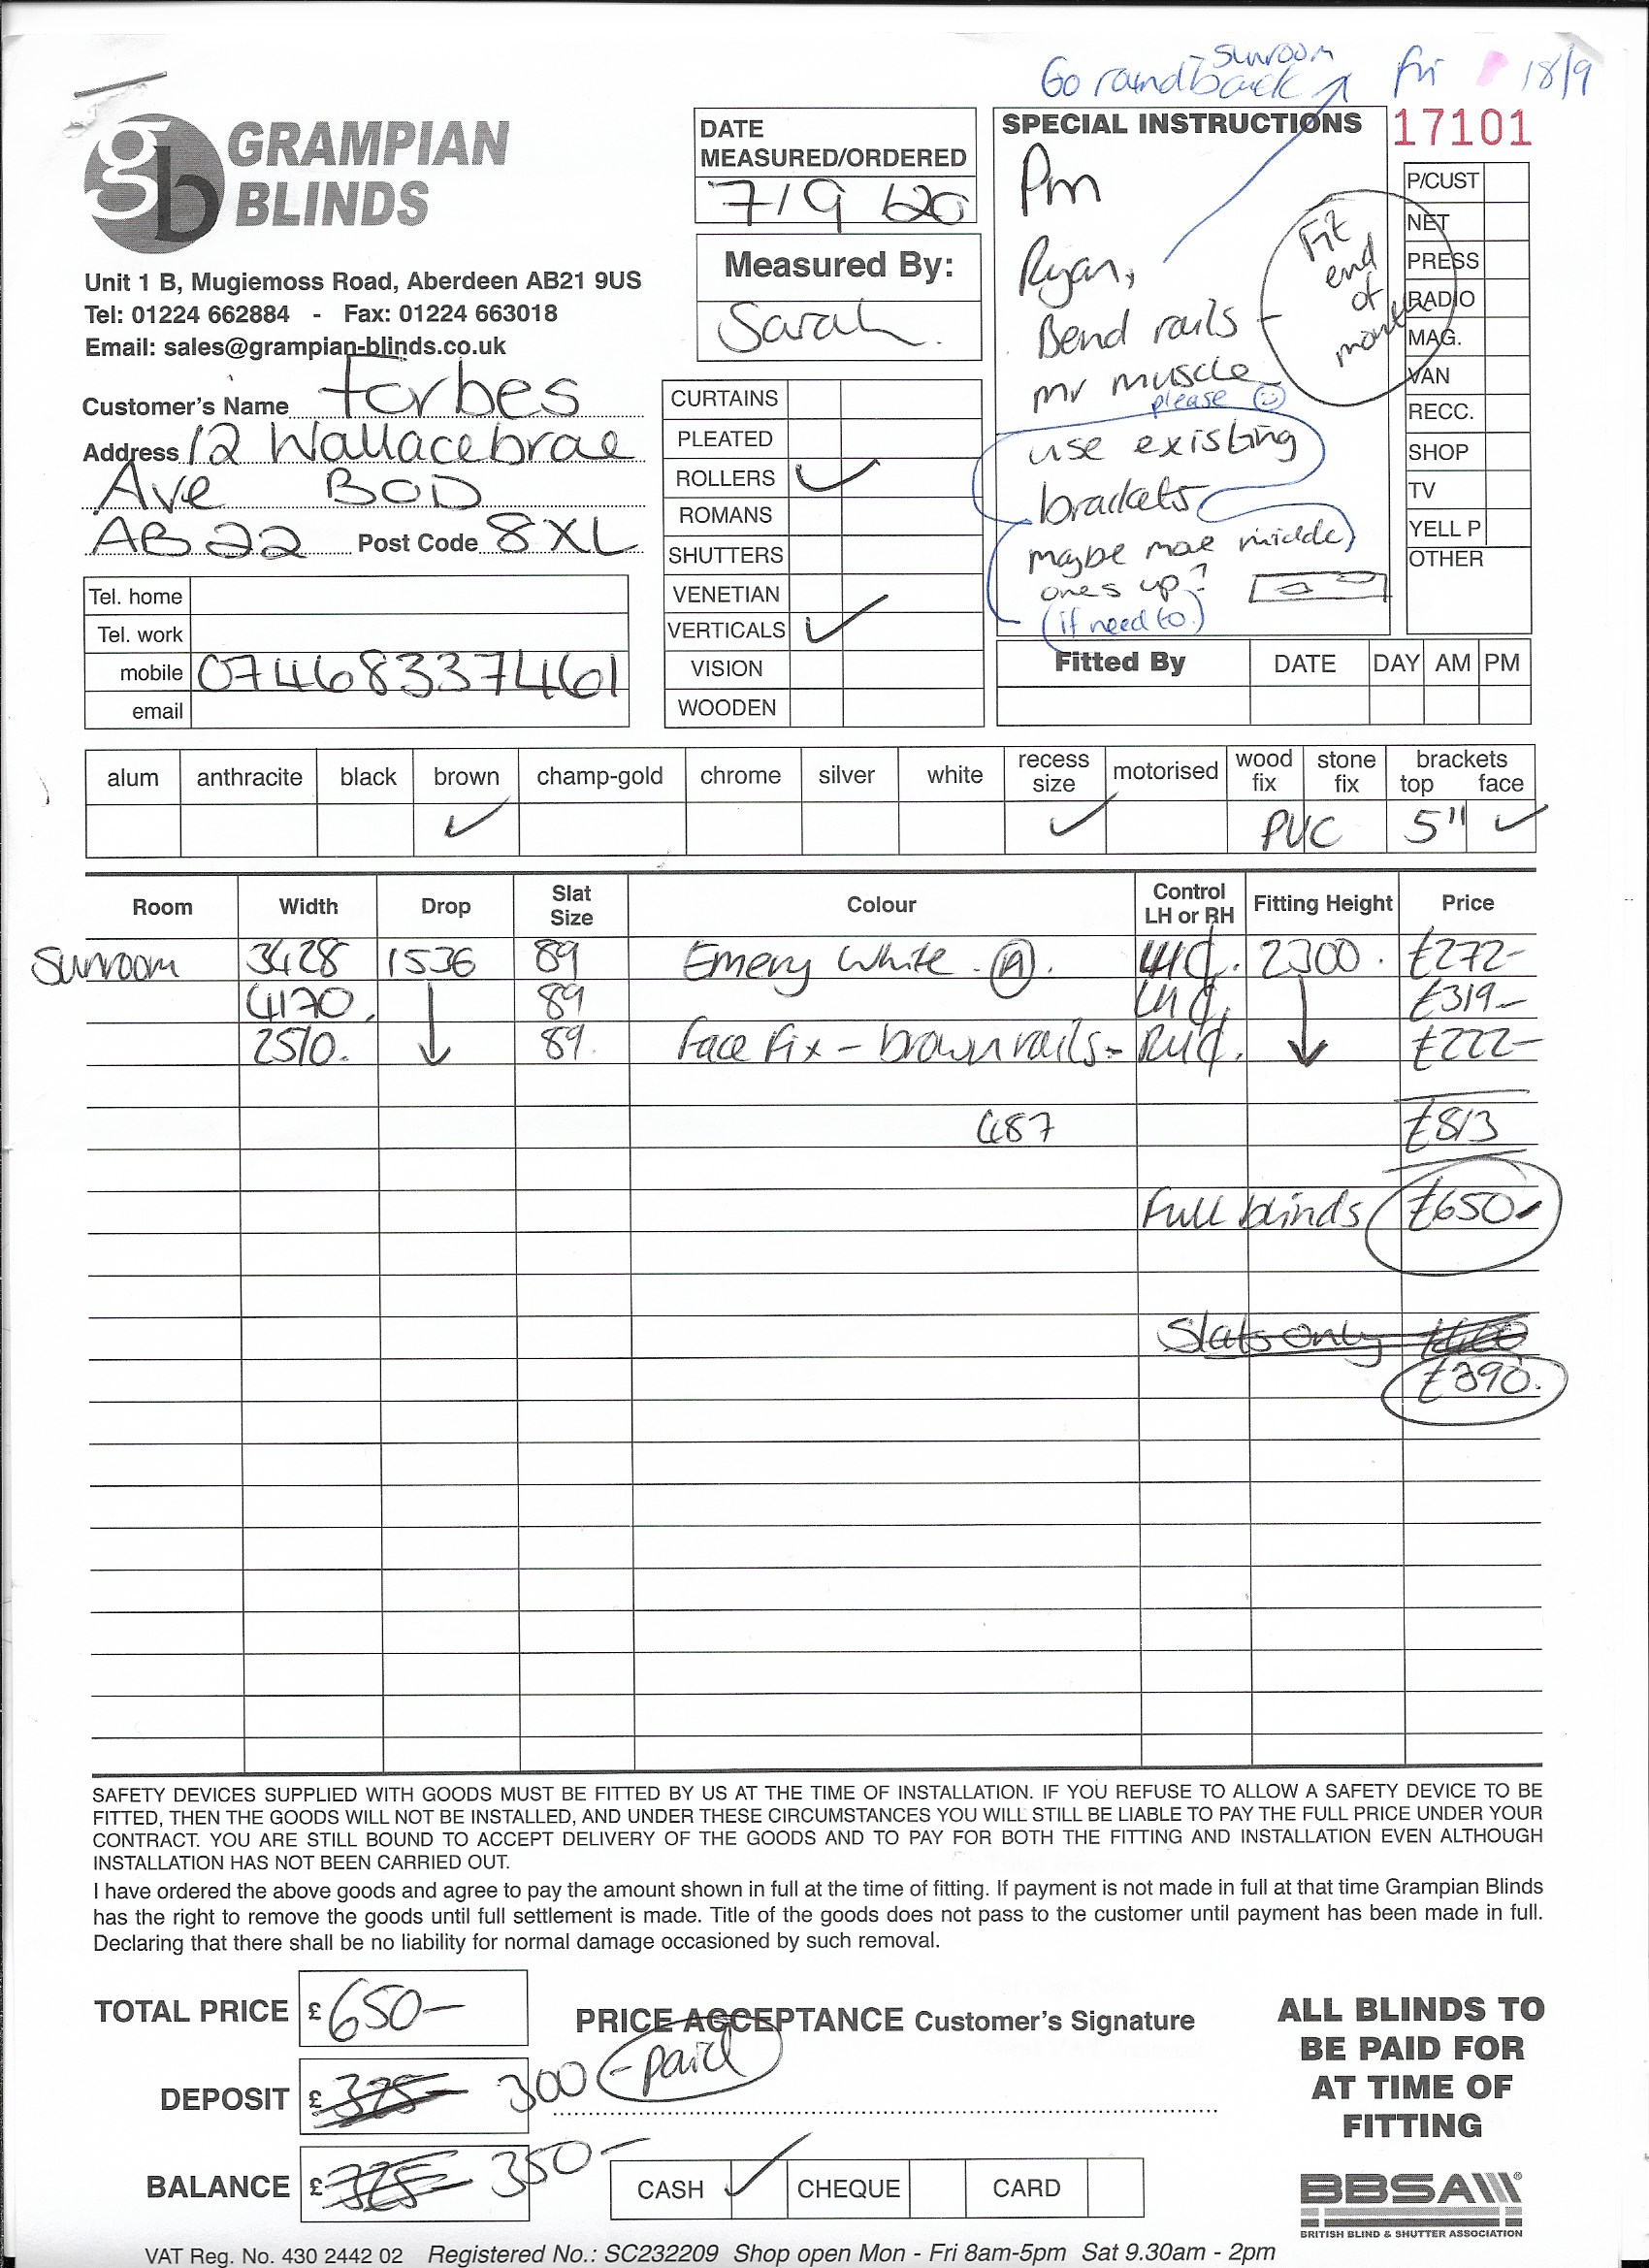 Go round back sunroom Fri 18/9
GRAMPIAN
BLINDS
Unit 1 B, Mugiemoss Road, Aberdeen AB21 9US
Tel: 01224 662884 - Fax: 01224 663018
Email: sales@grampian-blinds.co.uk
Customer's Name Forbes
Address 12 Wallacebrae
Ave BOD
AB22 Post Code 8XL
Tel. home
Tel. work
mobile 07468337461
email
DATE
MEASURED/ORDERED
7/9/20
Measured By:
Sarah
CURTAINS
PLEATED
ROLLERS ✓
ROMANS
SHUTTERS
VENETIAN
VERTICALS ✓
VISION
WOODEN
SPECIAL INSTRUCTIONS
Pm
Ryan,
Bend rails -
mr muscle
please
use existing
brackets
maybe move middle
ones up?
(if need to.)
Fit
end
of
month
17101
P/CUST
NET
PRESS
RADIO
MAG.
VAN
RECC.
SHOP
TV
YELL P
OTHER
Fitted By DATE DAY AM PM
alum anthracite black brown champ-gold chrome silver white recess size motorised wood fix stone fix brackets top face
✓ ✓ PVC 5" ✓
Room Width Drop Slat Size Colour Control LH or RH Fitting Height Price
Sunroom 3428 1536 89 Emery White (A). 2300. £272-
4170. 89 £319-
2510. 89. Face Fix - brown rails - £222-
487 £813
Full blinds £650-
Slats only
£390.
SAFETY DEVICES SUPPLIED WITH GOODS MUST BE FITTED BY US AT THE TIME OF INSTALLATION. IF YOU REFUSE TO ALLOW A SAFETY DEVICE TO BE
FITTED, THEN THE GOODS WILL NOT BE INSTALLED, AND UNDER THESE CIRCUMSTANCES YOU WILL STILL BE LIABLE TO PAY THE FULL PRICE UNDER YOUR
CONTRACT. YOU ARE STILL BOUND TO ACCEPT DELIVERY OF THE GOODS AND TO PAY FOR BOTH THE FITTING AND INSTALLATION EVEN ALTHOUGH
INSTALLATION HAS NOT BEEN CARRIED OUT.
I have ordered the above goods and agree to pay the amount shown in full at the time of fitting. If payment is not made in full at that time Grampian Blinds
has the right to remove the goods until full settlement is made. Title of the goods does not pass to the customer until payment has been made in full.
Declaring that there shall be no liability for normal damage occasioned by such removal.
TOTAL PRICE £650-
PRICE ACCEPTANCE Customer's Signature
DEPOSIT £325- 300 - paid
BALANCE £325- 350-
CASH ✓ CHEQUE CARD
ALL BLINDS TO
BE PAID FOR
AT TIME OF
FITTING
BBSA
BRITISH BLIND & SHUTTER ASSOCIATION
VAT Reg. No. 430 2442 02 Registered No.: SC232209 Shop open Mon - Fri 8am-5pm Sat 9.30am - 2pm